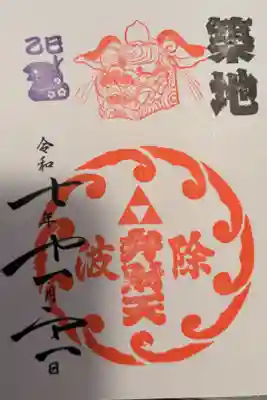 築地
乙巳
波除
弁財天
令和七年十一月
日